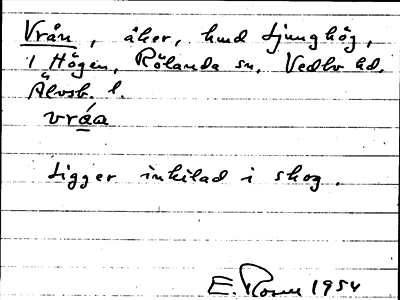 Vrån, åker, hmd Ljunghög,
1 Högen, Rölanda sn, Vedbo hd.
Älvsb. l.
vráa
Ligger inkilad i skog.
E. 1954